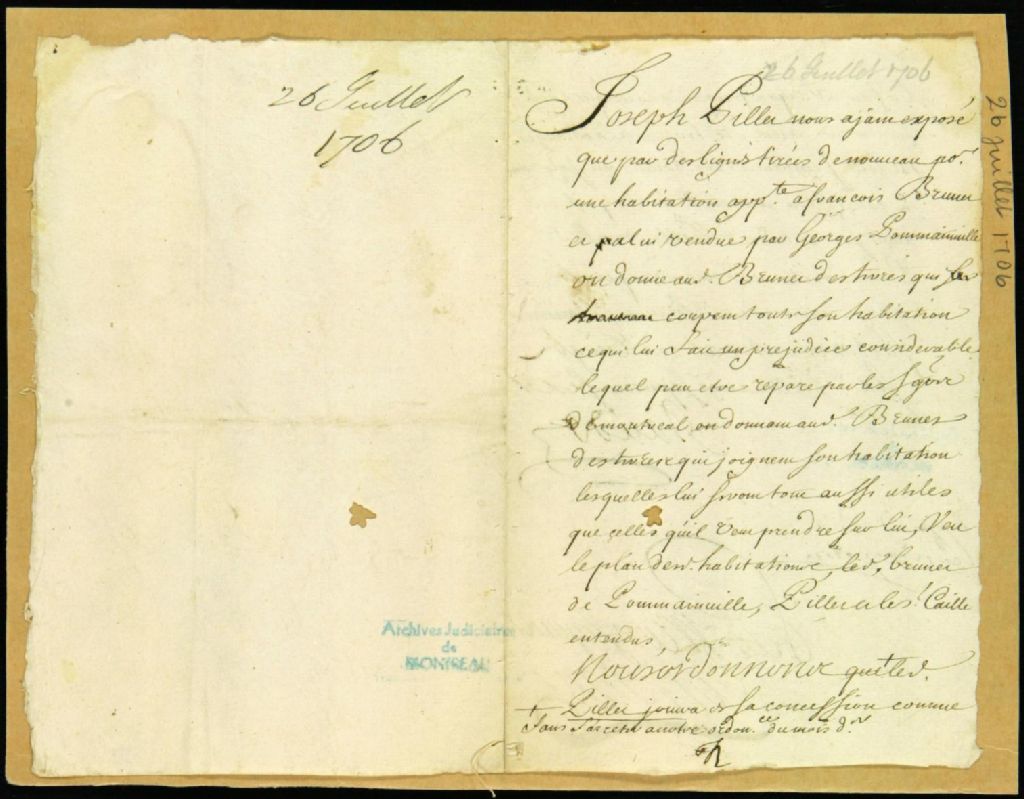 26 Juillet
1706
Archives Judiciaires
de
MONTREAL
26 Juillet 1706
Joseph Piller nous ajant exposé
que par des lignes tirées de nouveau por.
une habitation app.te a francois Brunet
et a lui vendue par Georges Pommainuille
on donne aud. Brunet des terres qui
coupent toute son habitation
ce qui lui fait un prejudice considerable
lequel peut etre reparé par les sgrs
de montreal en donnant aud. Brunet
des terres qui joignent son habitation
lesquelles lui seront tout aussi utiles
que celles qu'il veut prendre sur lui, Veu
le plan desd. habitations, led. brunet
de Pommainuille, Piller et le sr. Caille
entendus
Nous ordonnons que led.
Piller jouira de sa concession comme
+ sans s'arreter a notre ordon.ce du mois dr
26 juillet 1706